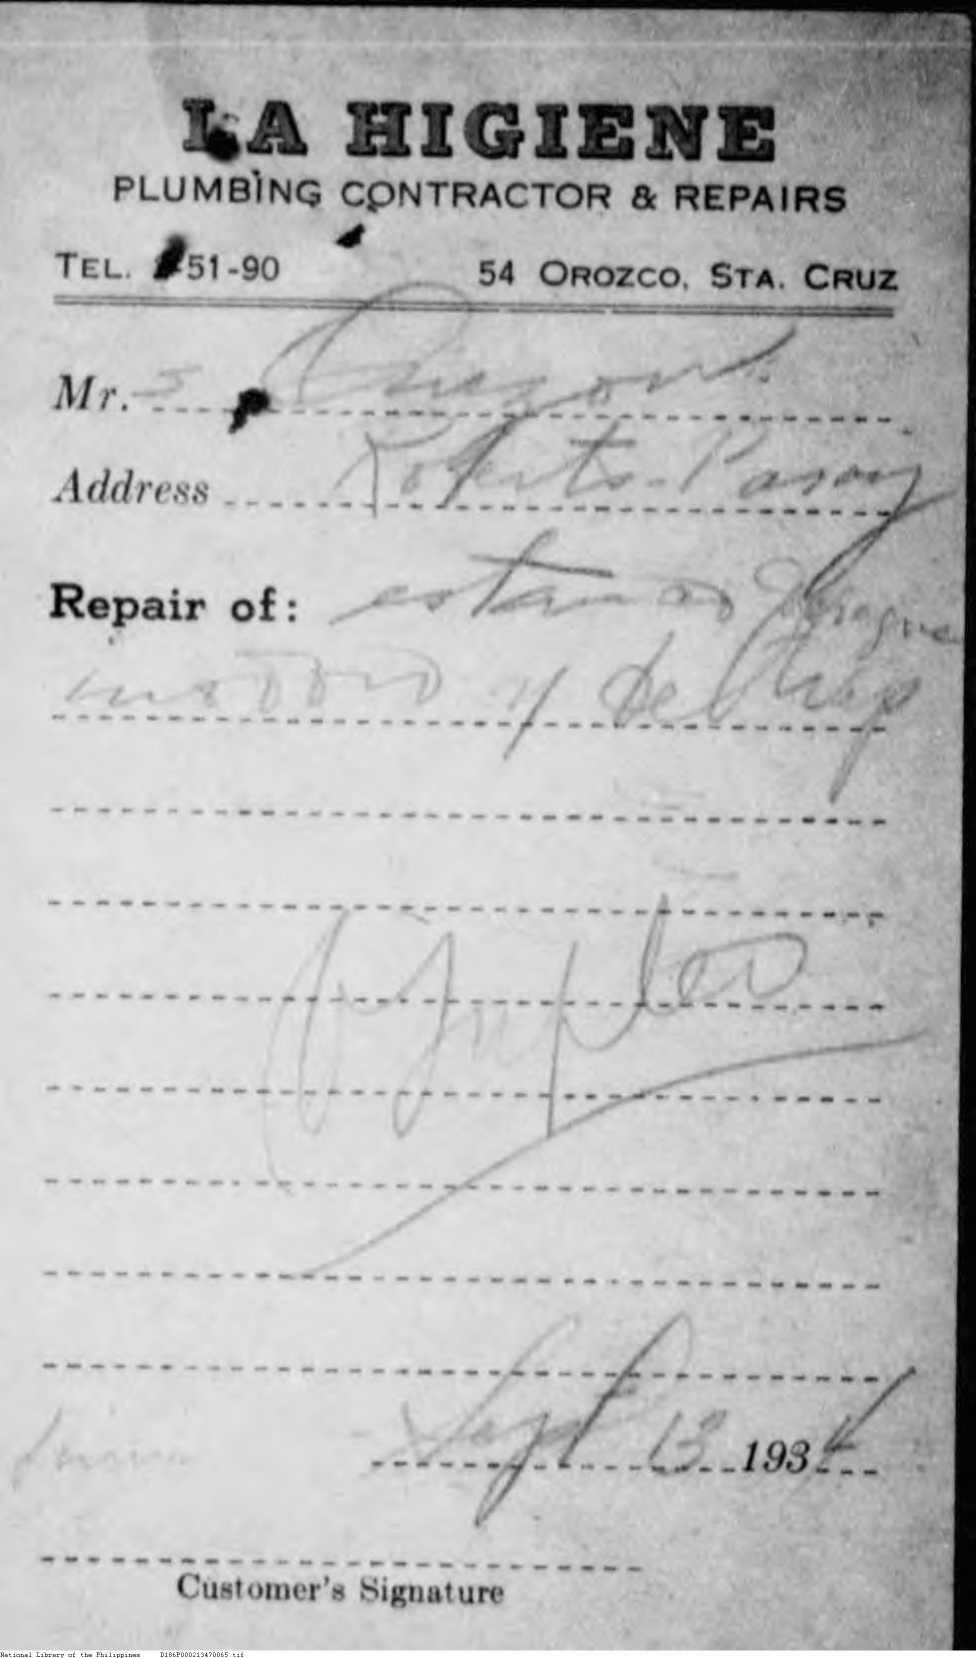 LA HIGIENE
PLUMBING CONTRACTOR & REPAIRS
TEL. 51-90 54 OROZCO, STA. CRUZ
Mr.s Quezon
Address Roberts-Pasay
Repair of:
inodoro y de
Sept 13 1934
Customer's Signature
National Library of the Philippines D186P000213470065.tif